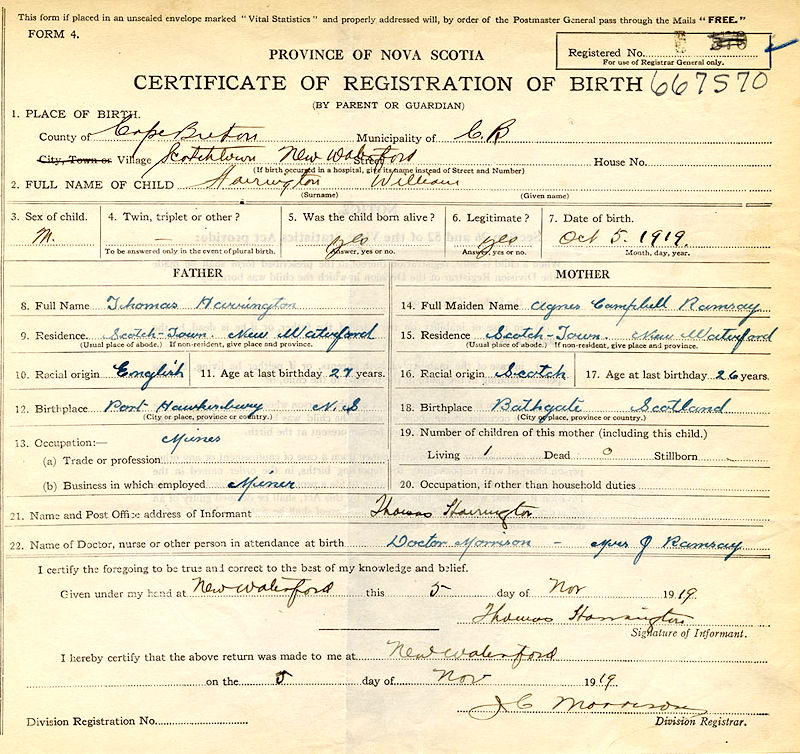 This form if placed in an unsealed envelope marked "Vital Statistics" and properly addressed will, by order of the Postmaster General pass through the Mails "FREE."
FORM 4.
Registered No.
For use of Registrar General only.
PROVINCE OF NOVA SCOTIA
CERTIFICATE OF REGISTRATION OF BIRTH 667570
(BY PARENT OR GUARDIAN)
1. PLACE OF BIRTH.
County of Cape Breton Municipality of C. B
City, Town or Village Scotchtown New Waterford Street House No.
(If birth occurred in a hospital, give its name instead of Street and Number)
2. FULL NAME OF CHILD Harrington William
(Surname) (Given name)
3. Sex of child. 4. Twin, triplet or other? 5. Was the child born alive? 6. Legitimate? 7. Date of birth.
M. — yes yes Oct 5. 1919.
To be answered only in the event of plural birth. Answer, yes or no. Answer, yes or no. Month, day, year.
FATHER MOTHER
8. Full Name Thomas Harrington 14. Full Maiden Name Agnes Campbell Ramsay
9. Residence Scotch-Town. New Waterford 15. Residence Scotch-Town. New Waterford
(Usual place of abode.) If non-resident, give place and province. (Usual place of abode.) If non-resident, give place and province.
10. Racial origin English 11. Age at last birthday 27 years. 16. Racial origin Scotch 17. Age at last birthday 26 years.
12. Birthplace Port Hawkesbury N.S 18. Birthplace Bathgate Scotland
(City or place, province or country.) (City or place, province or country.)
13. Occupation:— Mines 19. Number of children of this mother (including this child.)
(a) Trade or profession Living 1 Dead 0 Stillborn
(b) Business in which employed Miner 20. Occupation, if other than household duties
21. Name and Post Office address of Informant Thomas Harrington
22. Name of Doctor, nurse or other person in attendance at birth Doctor Morrison - Mrs J Ramsay
I certify the foregoing to be true and correct to the best of my knowledge and belief.
Given under my hand at New Waterford this 5 day of Nov 1919.
Thomas Harrington
Signature of Informant.
I hereby certify that the above return was made to me at New Waterford
on the 5 day of Nov 1919.
J C Morrison
Division Registration No. Division Registrar.